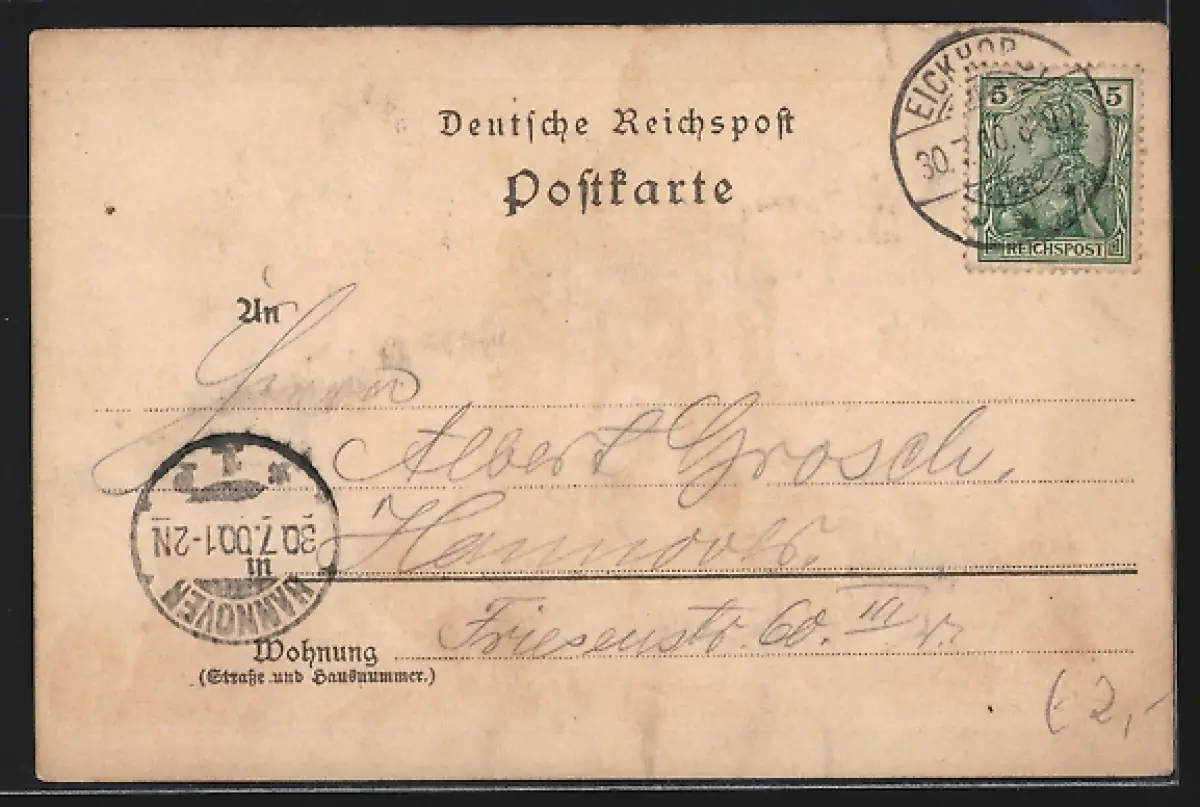 Deutsche Reichspost
Postkarte
EICKHORST
30.7.00.
5 5
REICHSPOST
An
Herrn
Albert Grosch,
Hannover.
30.7.00.1-2N
HANNOVER
Friesenstr. 60. III r.
Wohnung
(Straße und Hausnummer.)
2,-